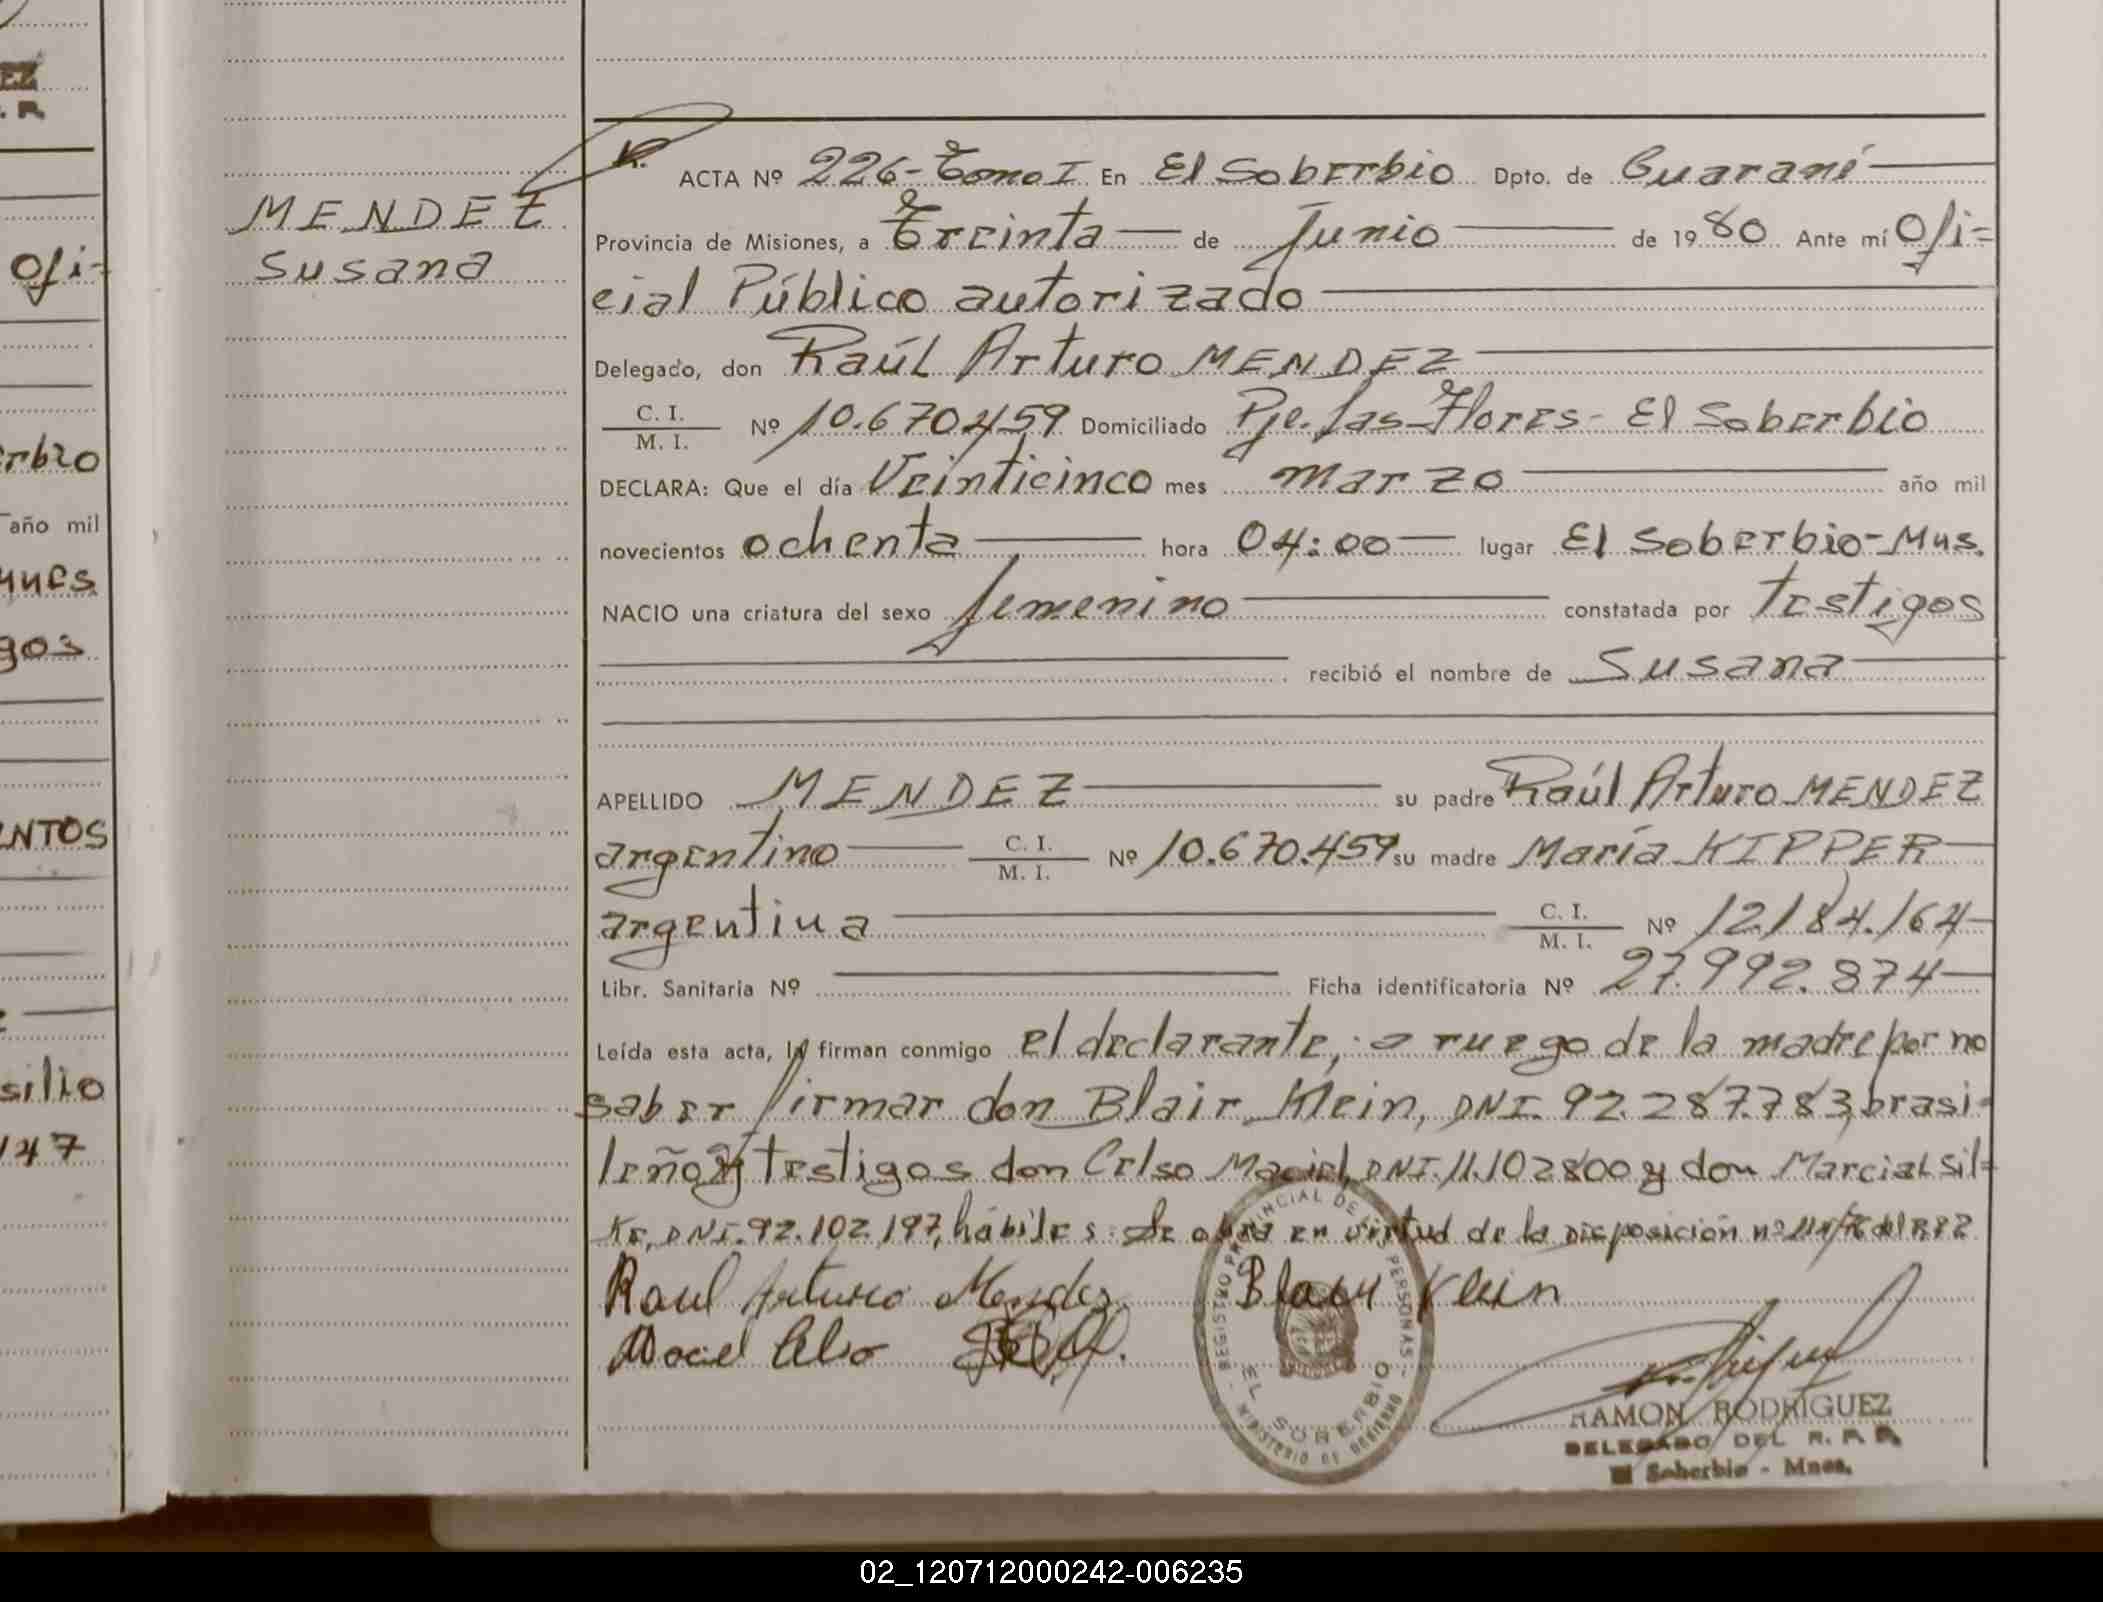 EZ
. R
ofi-
erbio
año mil
unes
gos
ENTOS
silio
147
MENDEZ
Susana
ACTA Nº 226- Tomo I En El Soberbio Dpto. de Guaraní
Provincia de Misiones, a Treinta de Junio de 1980 Ante mí Ofi=
cial Público autorizado
Delegado, don Raúl Arturo MENDEZ
C. I.
M. I. Nº 10.670.459 Domiciliado Pje. las Flores - El Soberbio
DECLARA: Que el día Veinticinco mes marzo año mil
novecientos ochenta hora 04:00 lugar El Soberbio-Mns.
NACIO una criatura del sexo femenino constatada por testigos
recibió el nombre de Susana
APELLIDO MENDEZ su padre Raúl Arturo MENDEZ
argentino C. I.
M. I. Nº 10.670.459 su madre María KIPPER
argentina C. I.
M. I. Nº 12.184.164
Libr. Sanitaria Nº Ficha identificatoria Nº 27.992.874
Leída esta acta, la firman conmigo el declarante, a ruego de la madre por no
saber firmar don Blair Klein, DNI. 92.287.783, brasi=
leño y testigos don Celso Maciel, DNI. 11.102800 y don Marcial Sil=
ke, DNI. 92.102.197, hábiles. Se obra en virtud de la Disposición nº
Raul Arturo Mendez Blair Klein
Maciel Celso
REGISTRO PROVINCIAL DE LAS PERSONAS
EL SOBERBIO
MINISTERIO DE GOBIERNO
RAMON RODRIGUEZ
DELEGADO DEL R. P. P.
El Soberbio - Mnes.
02_120712000242-006235